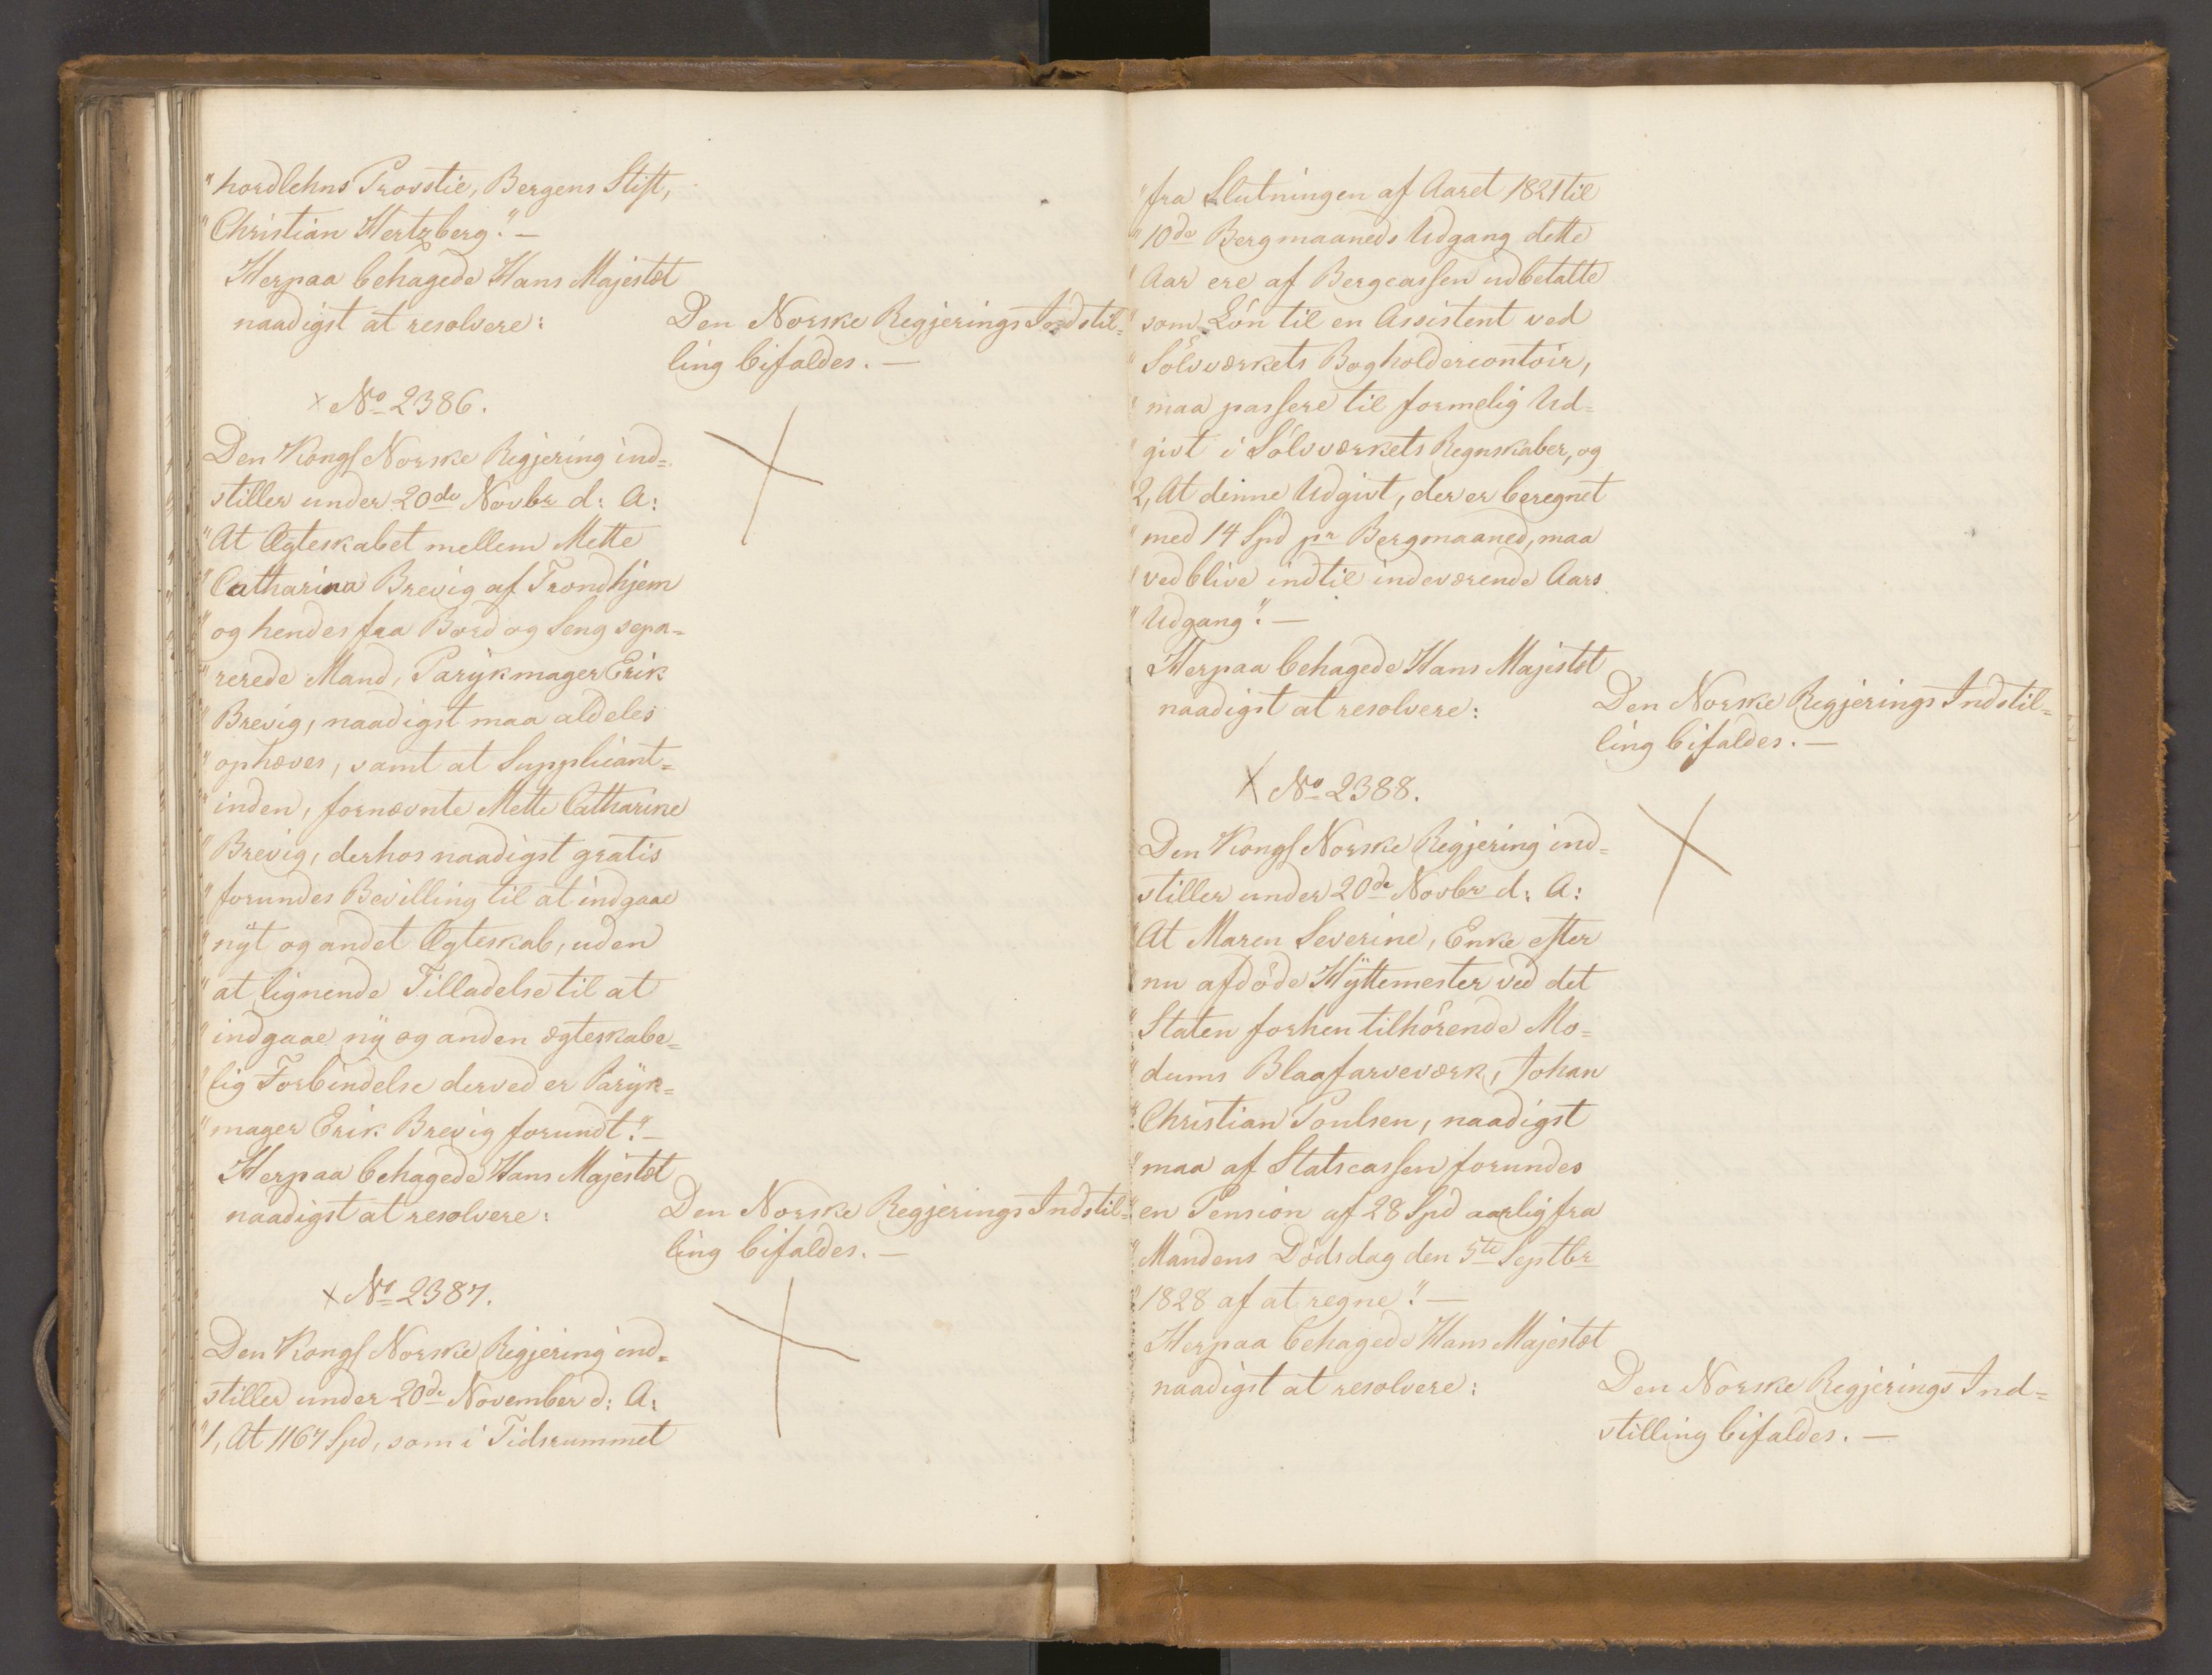 "hordlehns Provstie, Bergens Stift,
"Christian Hertzberg". —
Herpaa behagede Hans Majestæt
naadigst at resolvere:
Den Norske Regjerings Indstil=
ling bifaldes. —
× No 2386.
Den Kongl Norske Regjering ind=
stiller under 20de Novbr d: A:
"At Ægteskabet mellem Mette
"Catharina Brevig af Trondhjem
"og hendes fra Bord og Seng sepa=
"rerede Mand, Parykmager Erik
"Brevig, naadigst maa aldeles
"ophæves, samt at Supplicant=
"inden, fornævnte Mette Catharine
"Brevig, derhos naadigst gratis
"forundes Bevilling til at indgaae
"nyt og andet Ægteskab, uden
"at lignende Tilladelse til at
"indgaae ny og anden ægteskabe=
"lig Forbindelse derved er Paryk=
"mager Erik Brevig forundt". —
Herpaa behagede Hans Majestæt
naadigst at resolvere:
Den Norske Regjerings Indstil=
ling bifaldes. —
× No 2387.
Den Kongl Norske Regjering ind=
stiller under 20de November d: A:
"1, At 1167 Spd, som i Tidsrummet
"fra Slutningen af Aaret 1821 til
"10de Bergmaaneds Udgang dette
"Aar ere af Bergcassen udbetalte
"som Lön til en Assistent ved
"Sölvværkets Bogholdercontoir,
"maa passere til formelig Ud=
"givt i Sölvværkets Regnskaber, og
2, At denne Udgivt, der er beregnet
"med 14 Spd pr Bergmaaned, maa
"vedblive indtil indeværende Aars
"Udgang". —
Herpaa behagede Hans Majestæt
naadigst at resolvere:
Den Norske Regjerings Indstil=
ling bifaldes. —
× No 2388.
Den Kongl Norske Regjering ind=
stiller under 20de Novbr d: A:
"At Maren Severine, Enke efter
"nu afdöde Hyttemester ved det
"Staten forhen tilhörende Mo=
"dums Blaafarveværk, Johan
"Christian Poulsen, naadigst
"maa af Statscassen forundes
"en Pension af 28 Spd aarlig fra
"Mandens Dödsdag den 5te Septbr
"1828 af at regne". —
Herpaa behagede Hans Majestæt
naadigst at resolvere:
Den Norske Regjerings Ind=
stilling bifaldes. —